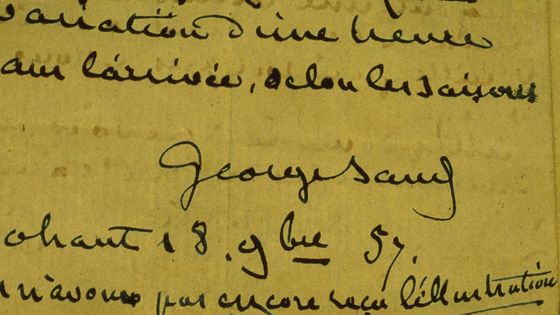 variation d'une heure
dans l'arrivée, selon les saisons
George Sand
ohant 18. 9bre 57.
n'avons pas encore reçu l'illustration